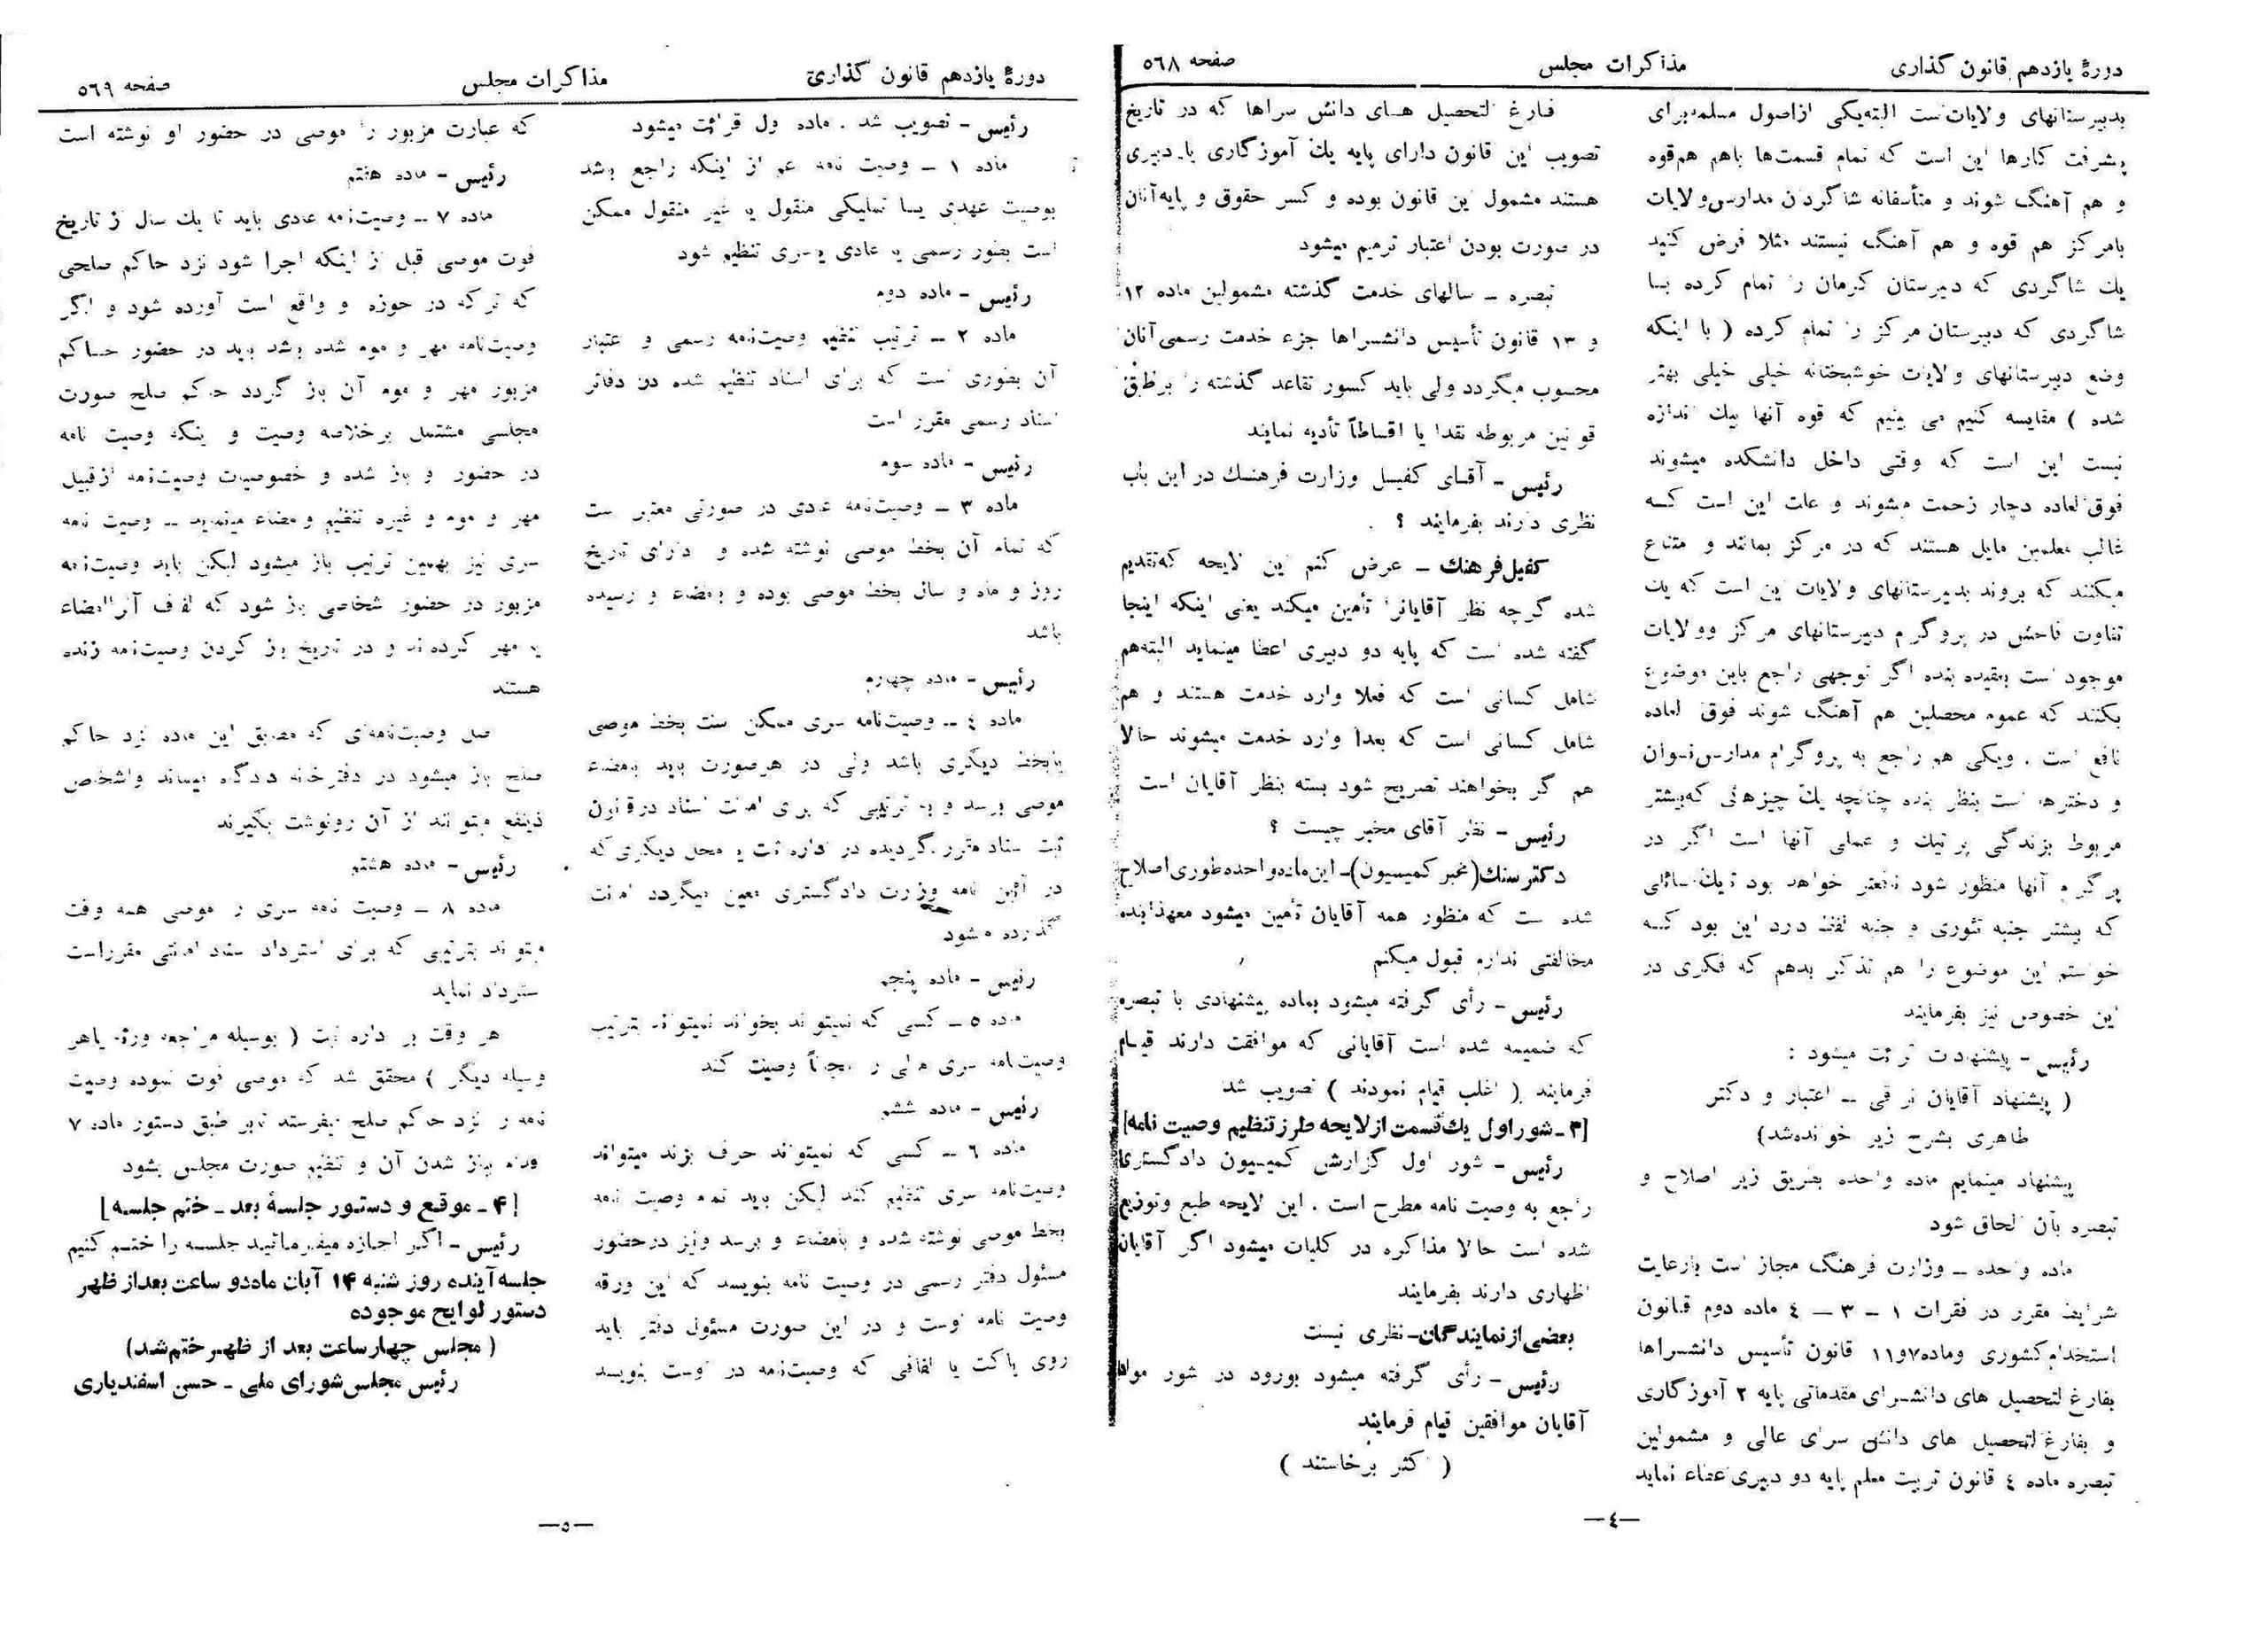 دورهٔ یازدهم قانون گذاری
مذاکرات مجلس
صفحه ٥٦٨
بدبیرستانهای ولایات است البته‌یکی ازاصول مسلمه‌برای
پیشرفت کارها این است که تمام قسمت‌ها باهم هم‌قوه
و هم آهنگ شوند و متأسفانه شاگردان مدارس‌ولایات
بامرکز هم قوه و هم آهنگ نیستند مثلا فرض کنید
یك شاگردی که دبیرستان کرمان را تمام کرده بـا
شاگردی که دبیرستان مرکز را تمام کرده ( با اینکه
وضع دبیرستانهای ولایات خوشبختانه خیلی خیلی بهتر
شده ) مقایسه کنیم می بینیم که قوه آنها بیك اندازه
نیست این است که وقتی داخل دانشکده میشوند
فوق‌العاده دچار زحمت میشوند و علت این است کـه
غالب معلمین مایل هستند که در مرکز بمانند و امتناع
میکنند که بروند بدبیرستانهای ولایات این است که یك
تفاوت فاحش در پروگرام دبیرستانهای مرکز وولایات
موجود است بعقیده بنده اگر توجهی راجع باین موضوع
بکنند که عموم محصلین هم آهنگ شوند فوق العاده
نافع است . ویکی هم راجع به پروگرام مدارس‌نسوان
و دخترها است بنظر بنده چنانچه یك چیزهائی که‌بیشتر
مربوط بزندگی پرتیك و عملی آنها است اگر در
پرگرام آنها منظور شود نافعتر خواهد بود تا یك مسائلی
که بیشتر جنبه تئوری و جنبه لفظ دارد این بود کـه
خواستم این موضوع را هم تذکر بدهم که فکری در
این خصوص نیز بفرمایند
رئیس - پیشنهادات قرائت میشود :
( پیشنهاد آقایان نراقی ــ اعتبار و دکتر
طاهری بشرح زیر خوانده‌شد)
پیشنهاد مینمایم ماده واحده بطریق زیر اصلاح و
تبصره بآن الحاق شود
ماده واحده ــ وزارت فرهنگ مجاز است بارعایت
شرایط مقرر در فقرات ۱ - ۳ - ٤ ماده دوم قـانون
استخدام‌کشوری وماده۷و۱۱ قانون تأسیس دانشسراها
بفارغ‌التحصیل های دانشسرای مقدماتی پایه ۲ آموزگاری
و بفارغ‌التحصیل های دانش سرای عالی و مشمولین
تبصره ماده ٤ قانون تربیت معلم پایه دو دبیری‌اعطاء نماید
فـارغ التحصیل هـای دانش سراها که در تاریخ
تصویب این قانون دارای پایه یك آموزگاری یا دبیری
هستند مشمول این قانون بوده و کسر حقوق و پایه‌آنان
در صورت بودن اعتبار ترمیم میشود
تبصره ــ سالهای خدمت گذشته مشمولین ماده ۱۲
و ۱۳ قانون تأسیس دانشسراها جزء خدمت رسمی‌آنان
محسوب میگردد ولی باید کسور تقاعد گذشته را برطبق
قوانین مربوطه نقدا یا اقساطاً تأدیه نمایند
رئیس - آقـای کفیـل وزارت فرهنـك در این باب
نظری دارند بفرمایند ؟
کفیل فرهنك ـ عرض کنم این لایحه که‌تقدیم
شده گرچه نظر آقایانرا تأمین میکند یعنی اینکه اینجا
گفته شده است که پایه دو دبیری اعطا مینماید البته‌هم
شامل کسانی است که فعلا وارد خدمت هستند و هم
شامل کسانی است که بعداً وارد خدمت میشوند حالا
هم گر بخواهند تصریح شود بسته بنظر آقایان است
رئیس - نظر آقای مخبر چیست ؟
دکتر سنك(مخبر کمیسیون)- این‌ماده‌واحده‌طوری‌اصلاح
شده است که منظور همه آقایان تأمین میشود معهذا‌بنده
مخالفتی ندارم قبول میکنم
رئیس - رأی گرفته میشود بماده پیشنهادی با تبصره
که ضمیمه شده است آقایانی که موافقت دارند قیـام
فرمایند ( اغلب قیام نمودند ) تصویب شد
[۳ ـ شور اول یك قسمت از لایحه طرز تنظیم وصیت نامه]
رئیس - شور اول گزارش کمیسیون دادگستری
راجع به وصیت نامه مطرح است . این لایحه طبع وتوزیع
شده است حالا مذاکره در کلیات میشود اگر آقایان
اظهاری دارند بفرمایند
بعضی از نمایندگان- نظری نیست
رئیس - رأی گرفته میشود بورود در شور مواد
آقایان موافقین قیام فرمایند
( اکثر برخاستند )
—٤—
دورهٔ یازدهم قانون گذاری
مذاکرات مجلس
صفحه ٥٦٩
رئیس - تصویب شد . ماده اول قرائت میشود
ماده ۱ ــ وصیت نامه اعم از اینکه راجع باشد
بوصیت عهدی یـا تملیکی منقول یا غیر منقول ممکن
است بطور رسمی یا عادی یا سری تنظیم شود
رئیس - ماده دوم
ماده ۲ ــ ترتیب تنظیم وصیت‌نامه رسمی و اعتبار
آن بطوری است که برای اسناد تنظیم شده در دفاتر
اسناد رسمی مقرر است
رئیس - ماده سوم
ماده ۳ ــ وصیت‌نامه عادی در صورتی معتبر است
که تمام آن بخط موصی نوشته شده و دارای تاریخ
روز و ماه و سال بخط موصی بوده و بامضاء او رسیده
باشد
رئیس - ماده چهارم
ماده ٤ ــ وصیت‌نامه سری ممکن است بخط موصی
یابخط دیگری باشد ولی در هرصورت باید بامضاء
موصی برسد و به ترتیبی که برای امانت اسناد درقانون
ثبت اسناد مقرر گردیده در اداره ثبت یا محل دیگری‌که
در آئین نامه وزارت دادگستری معین میگردد امانت
گذارده میشود
رئیس - ماده پنجم
ماده ٥ ــ کسی که نمیتواند بخواند نمیتواند بترتیب
وصیت‌نامه سری مالی را مجاناً وصیت کند
رئیس - ماده ششم
ماده ٦ ــ کسی که نمیتواند حرف بزند میتواند
وصیت‌نامه سری تنظیم کند لیکن باید تمام وصیت نامه
بخط موصی نوشته شده و بامضاء او برسد ونیز درحضور
مسئول دفتر رسمی در وصیت نامه بنویسد که این ورقه
وصیت نامه اوست و در این صورت مسئول دفتر باید
روی پاکت یا لفافی که وصیت‌نامه در اوست بنویسد
که عبارت مزبور را موصی در حضور او نوشته است
رئیس - ماده هفتم
ماده ۷ ــ وصیت‌نامه عادی باید تا یك سال از تاریخ
فوت موصی قبل از اینکه اجرا شود نزد حاکم صلحی
که ترکه در حوزه او واقع است آورده شود و اگر
وصیت‌نامه مهر و موم شده باشد باید در حضور حـاکم
مزبور مهر و موم آن باز گردد حاکم صلح صورت
مجلسی مشتمل برخلاصه وصیت و اینکه وصیت نامه
در حضور او باز شده و خصوصیات وصیت‌نامه ازقبیل
مهر و موم و غیره تنظیم وامضاء مینماید ــ وصیت نامه
سری نیز بهمین ترتیب باز میشود لیکن باید وصیت‌نامه
مزبور در حضور اشخاصی باز شود که لفاف آنرا امضاء
یا مهر کرده اند و در تاریخ باز کردن وصیت‌نامه زنده
هستند
اصل وصیت‌نامه‌ای که مطابق این ماده نزد حاکم
صلح باز میشود در دفترخانه دادگاه میماند واشخاص
ذینفع میتوانند از آن رونوشت بگیرند
رئیس - ماده هشتم
ماده ۸ ــ وصیت نامه سری را موصی همه وقت
میتواند بترتیبی که برای استرداد اسناد امانتی مقرراست
استرداد نماید
هر وقت بر اداره ثبت ( بوسیله مراجعه ورثه یاهر
وسیله دیگر ) محقق شد که موصی فوت نموده وصیت
نامه را نزد حاکم صلح میفرستد تا بر طبق دستور ماده ۷
اقدام بباز شدن آن و تنظیم صورت مجلس بشود
[۴ ـ موقع و دستور جلسهٔ بعد ـ ختم جلسه]
رئیس - اگـر اجازه میفرمائید جلسه را ختـم کنیم
جلسه آینده روز شنبه ۱۴ آبان ماه دو ساعت بعد از ظهر
دستور لوایح موجوده
( مجلس چهار ساعت بعد از ظهر ختم شد)
رئیس مجلس شورای ملی ـ حسن اسفندیاری
—٥—